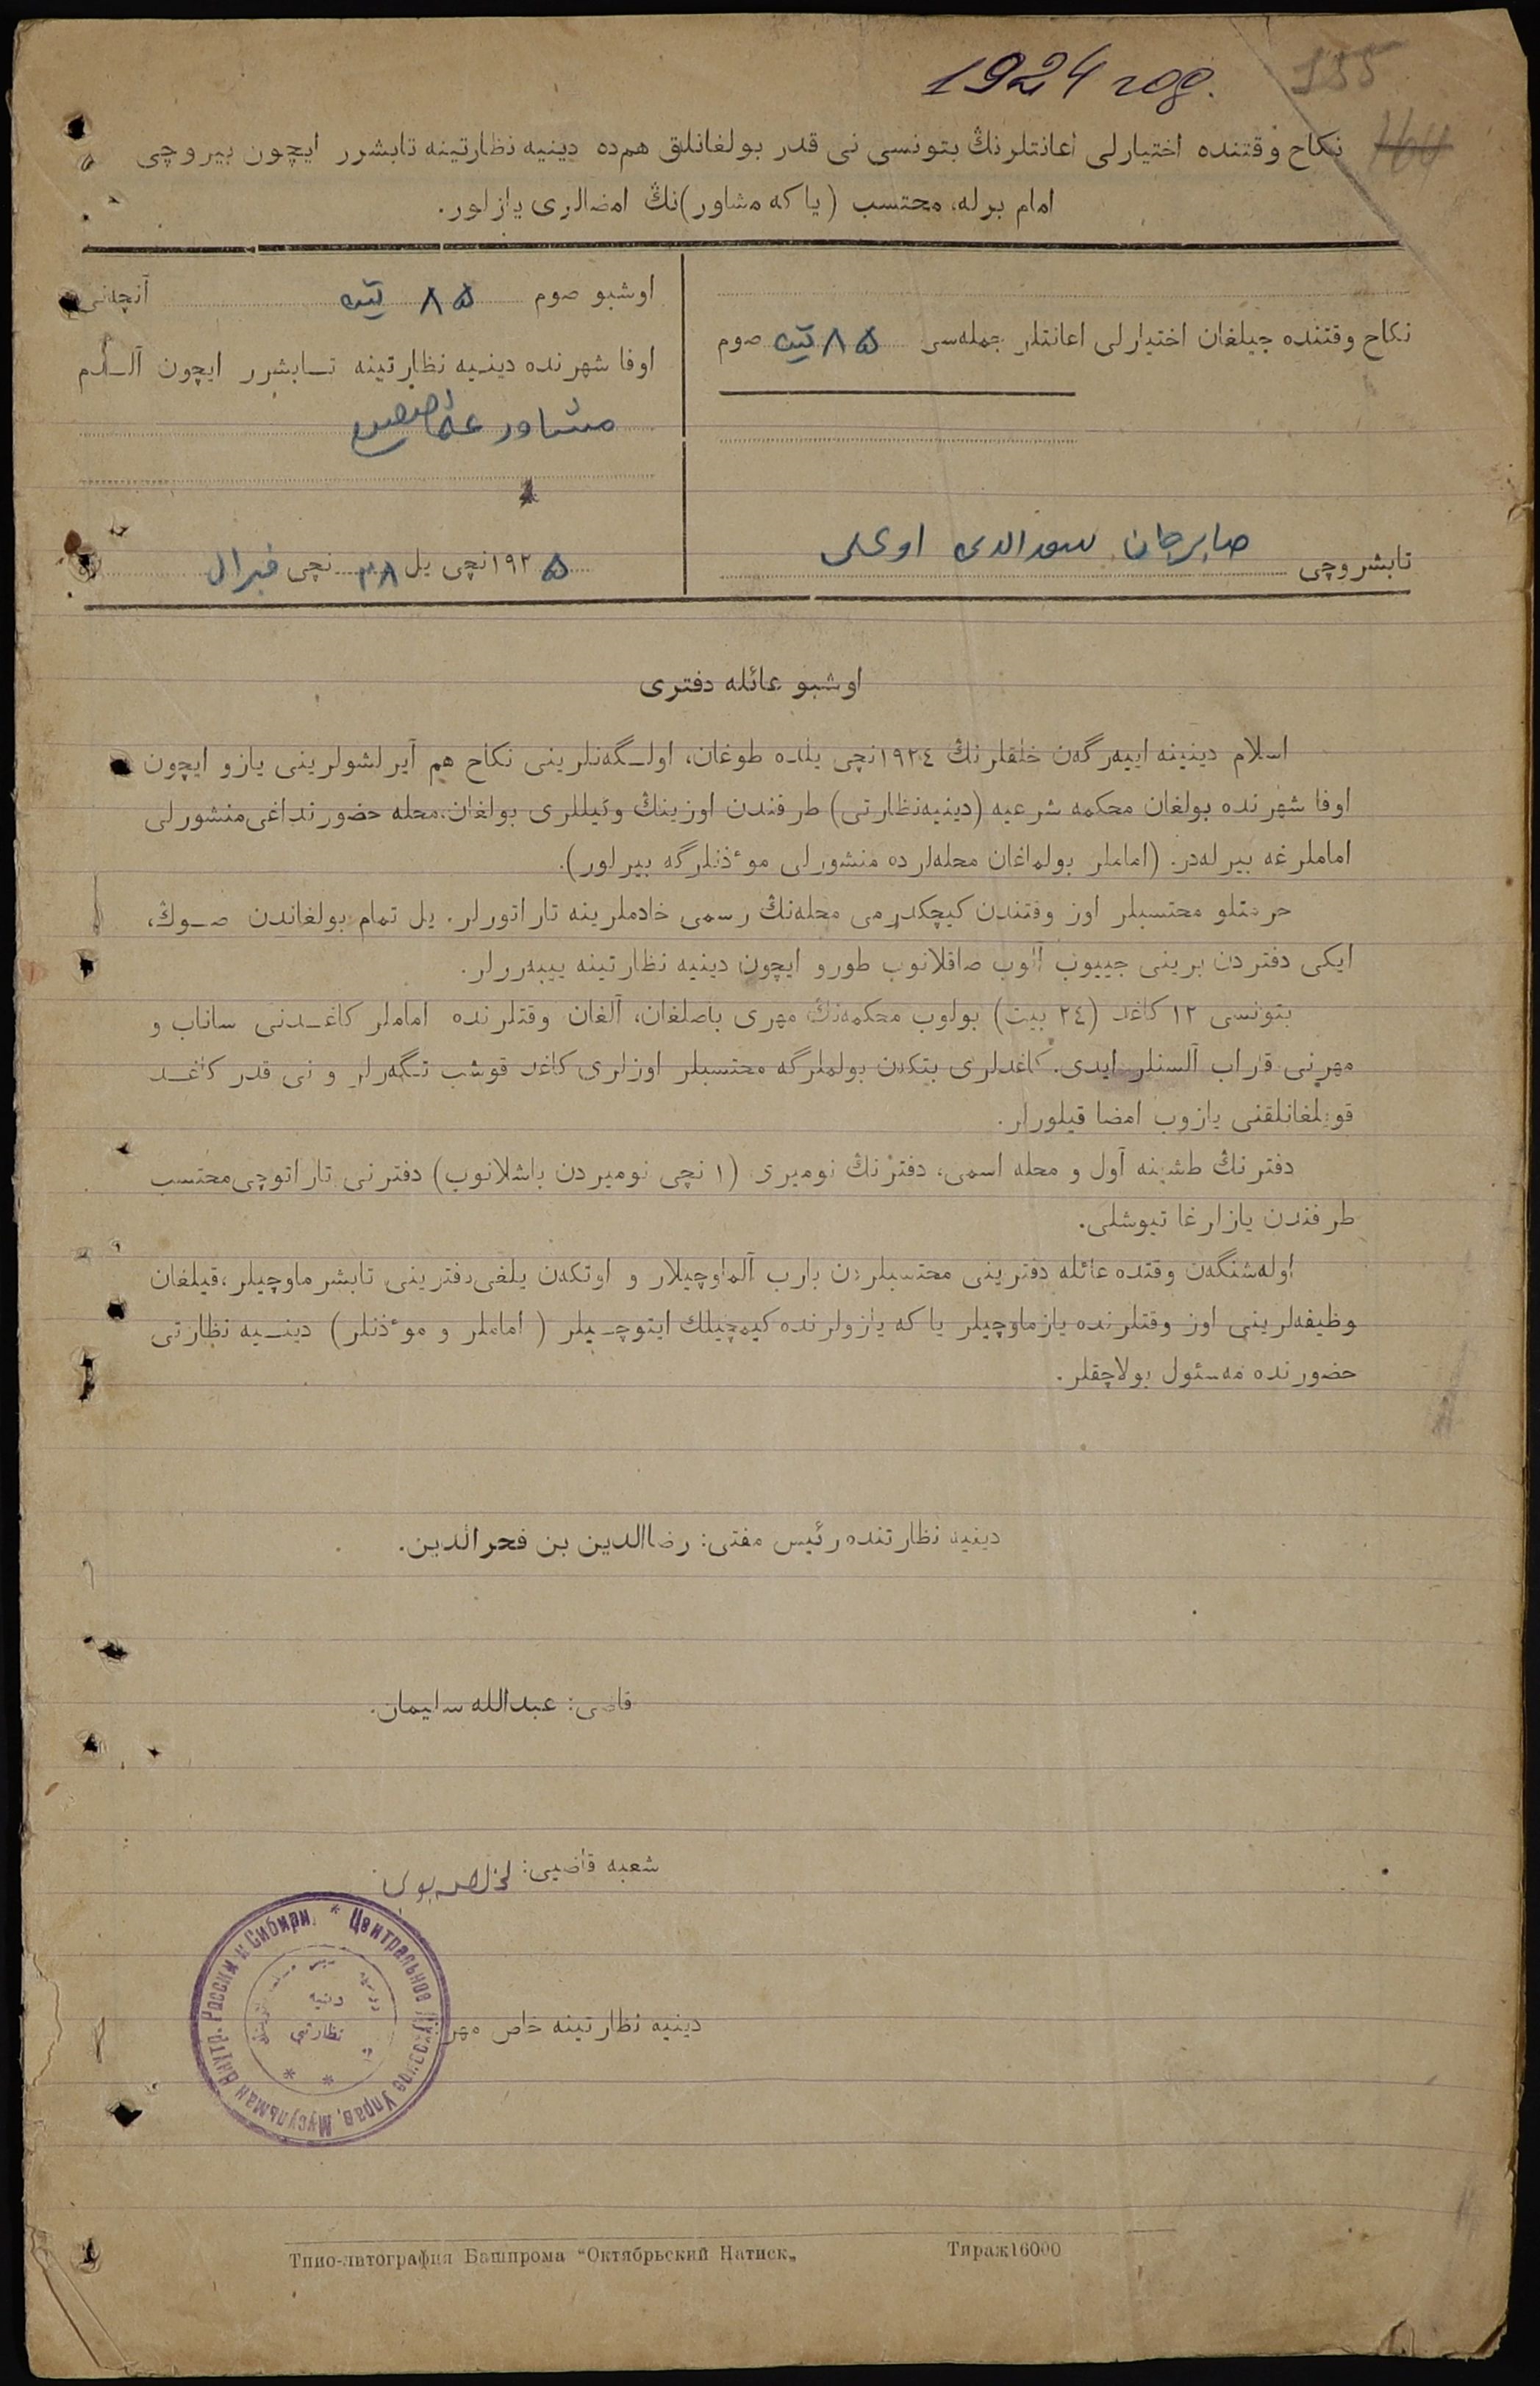 1924 год.
155
160
نكاح وقتنده اختیارلی اعانتلرنڭ بتونسی نی قدر بولغانلق هم‌ده دینیه نظارتینه تابشرر ایچون بیروچی
امام برله، محتسب (یا که مشاور)نڭ امضالری یازلور.
نكاح وقتنده جیلغان اختیارلی اعانتلر جمله‌سی ۸۵ تین صوم
تابشروچی صابرجان اوغلی
اوشبو صوم ۸۵ تین آنچه‌نی
اوفا شهرنده دینیه نظارتینه تابشرر ایچون آلدم
مشاور
۱۹۲۵نچی یل ۲۸ نچی فبرال
اوشبو عائله دفتری
اسلام دینینه اییه‌رگه‌ن خلقلرنڭ ۱۹۲٤نچی یلده طوغان، اولگه‌نلرینی نكاح هم آیرلشولرینی یازو ایچون
اوفا شهرنده بولغان محکمه شرعیه (دینیه‌نظارتی) طرفندن اوزینڭ وکیللری بولغان،محله حضورنداغی‌منشورلی
اماملرغه بیرله‌در. (اماملر بولماغان محله‌لرده منشورلی موٴذنلرگه بیرلور).
حرمتلو محتسبلر اوز وقتندن کیچکدرمی محله‌نڭ رسمی خادملرینه تاراتورلر. یل تمام بولغاندن صوڭ،
ایکی دفتردن برینی جییوب آلوب صاقلانوب طورو ایچون دینیه نظارتینه ییبه‌ررلر.
بتونسی ۱۲ كاغد (۲٤ بیت) بولوب محکمه‌نڭ مهری باصلغان، آلغان وقتلرنده اماملر كاغدنی ساناب و
مهرنی قاراب آلسنلر ایدی. كاغدلری بتكه‌ن بولملرگه محتسبلر اوزلری كاغد قوشب تگه‌رلر و نی قدر كاغد
قویلغانلقنی یازوب امضا قیلورلر.
دفترنڭ طشینه آول و محله اسمی، دفترنڭ نومیری (۱ نچی نومیردن باشلانوب) دفترنی تاراتوچی‌محتسب
طرفندن یازارغا تیوشلی.
اوله‌شنگه‌ن وقتده عائله دفترینی محتسبلردن بارب آلماوچیلار و اوتكه‌ن یلغی‌دفترینی تابشرماوچیلر،قیلغان
وظیفه‌لرینی اوز وقتلرنده یازماوچیلر یا که یازولرنده کیمچیلك ایتوچیلر ( اماملر و موٴذنلر) دینیه نظارتی
حضورنده مه‌سئول بولاچقلر.
دینیه نظارتنده رئیس مفتی: رضاالدین بن فخرالدین.
قاضی: عبدالله سلیمان.
شعبه قاضیی:
دینیه نظارتینه خاص مهر
Центральное Духовное Управ. Мусульман Внутр. России и Сибири.
دنیه
نظارتی
Типо-литография Башпрома “Октябрьский Натиск„ Тираж16000